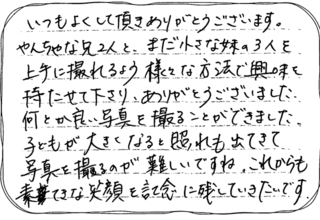 いつもよくして頂きありがとうございます。
やんちゃな兄2人と、まだ小さな妹の3人を
上手に撮れるよう様々な方法で興味を
持たせて下さり、ありがとうございました。
何とか良い写真を撮ることができました。
子どもが大きくなると照れも出てきて
写真を撮るのが難しいですね。これからも
素敵な笑顔を記念に残していきたいです。